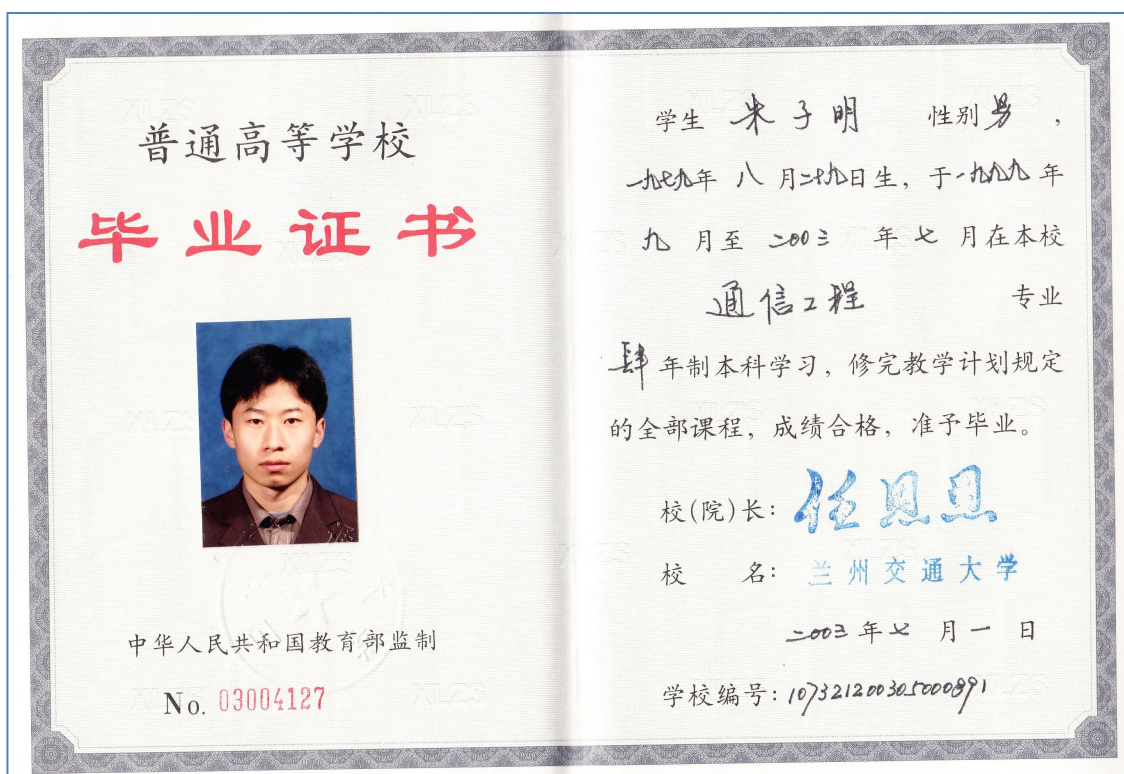 普通高等学校
毕业证书
中华人民共和国教育部监制
No. 03004127
学生 朱子明 性别 男 ,
一九七九年 八 月二十九日生, 于一九九九年
九 月至 二00三 年 七 月在本校
通信工程 专业
肆 年制本科学习, 修完教学计划规定
的全部课程, 成绩合格, 准予毕业。
校(院)长: 任恩恩
校 名: 兰州交通大学
二00三 年 七 月 一 日
学校编号: 107321200305000891